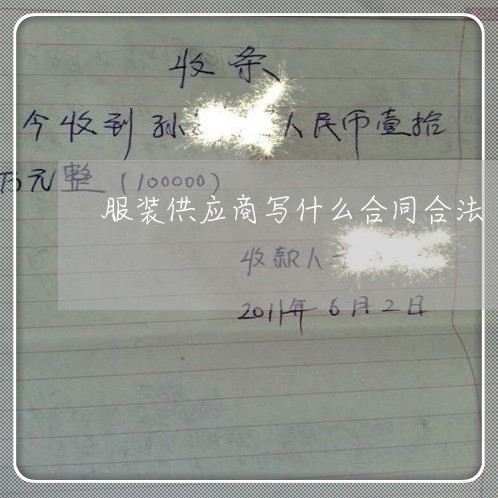 收条
今收到孙 人民币壹拾
万元整（100000）
服装供应商写什么合同合法
收款人
2011年6月2日